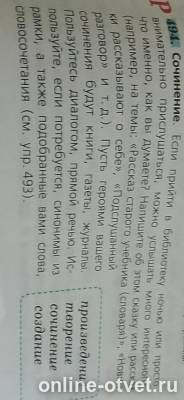 Р 494. Сочинение. Если прийти в библиотеку ночью или прос
внимательно прислушаться, можно услышать много интересно
что именно, как вы думаете? Напишите об этом сказку или расск
(например, на темы: «Рассказ старого учебника (словаря)», «Нов
ки рассказывают о себе», «Подслушанный
разговор» и т. д.). Пусть героями вашего
сочинения будут книги, газеты, журналы.
Пользуйтесь диалогом, прямой речью. Ис-
пользуйте, если потребуется, синонимы из
рамки, а также подобранные вами слова,
словосочетания (см. упр. 493).
произведени
творение
сочинение
создание
online-otvet.ru